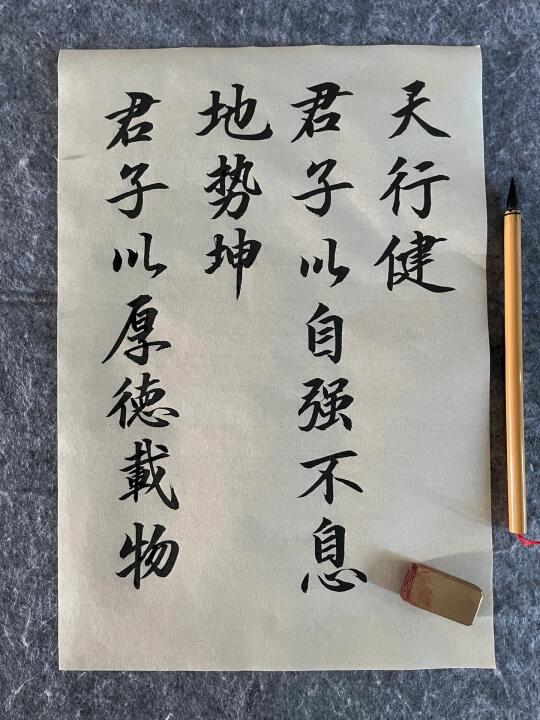 天行健
君子以自强不息
地势坤
君子以厚德載物